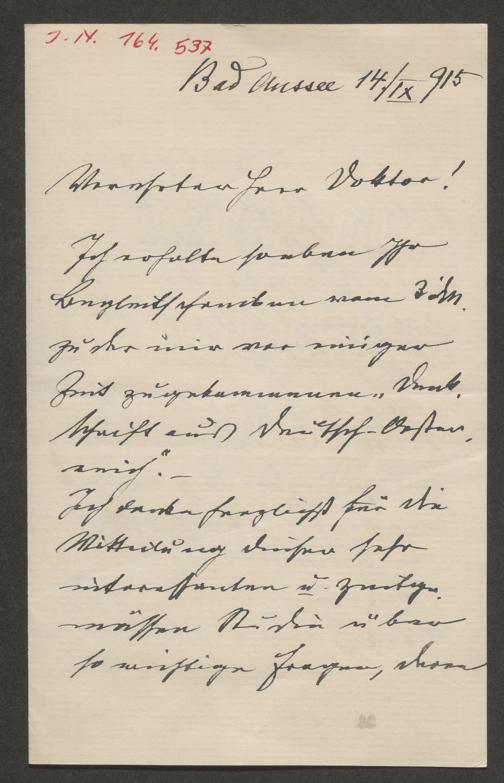 J. N. 164.537
Bad Aussee 14./IX 915
Verehrter Herr Doktor!
Ich erhalte soeben Ihr
Begleitschreiben vom 3. d.M.
zu der mir vor einiger
Zeit zugekommenen „Denk-
schrift aus Deutsch-Oester-
reich". –
Ich danke herzlichst für die
Mitteilung dieser sehr
interessanten u. zeitge-
mässen Studie über
so wichtige Fragen, deren